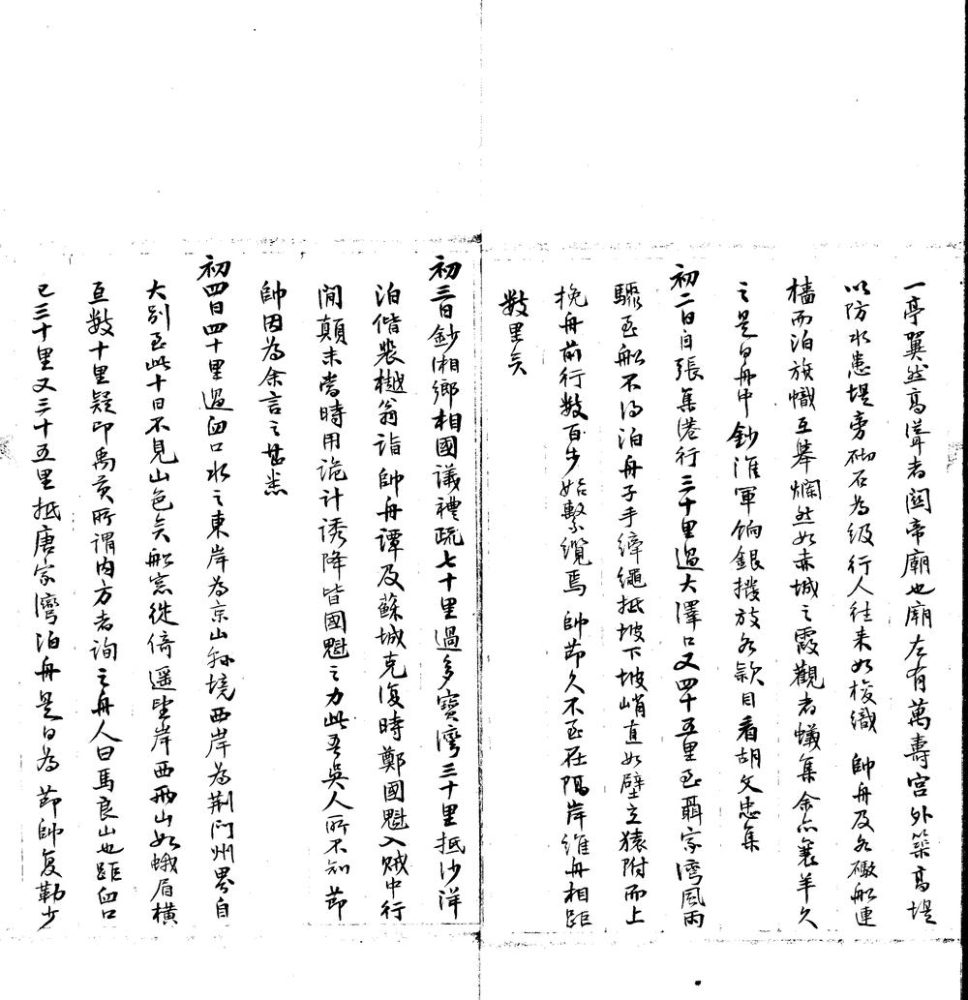 一亭翼然高聳者關帝廟也廟左有萬壽宮外築高堤
以防水患堤旁砌石為級行人往来如梭織 帥舟及各礮船連
檣而泊旗幟互舉爛然如赤城之霞觀者蟻集余亦襄羊久
之是日舟中鈔淮軍餉銀撥放各欵目看胡文忠集
初二日自張集港行三十里過大澤口又四十五里至聶家灣風雨
驟至船不得泊舟子手縴繩抵坡下坡峭直如壁立猿附而上
挽舟前行数百步始繫纜焉 帥節久不至在隔岸維舟相距
数里矣
初三日鈔湘鄉相國議禮疏七十里過多寶灣三十里抵沙洋
泊偕裴樾翁詣 帥舟譚及蘇城克復時鄭國魁入贼中行
間顛末當時用詭计诱降皆國魁之力此吾吳人所不知 節
帥因為余言之甚悉
初四日四十里過血口水之東岸為京山縣境西岸為荆门州界自
大别至此十日不見山色矣船窓徙倚遥望岸西两山如蛾眉横
亘数十里疑即禹貢所謂内方者詢之舟人曰馬良山也距血口
已三十里又三十五里抵唐家灣泊舟是日為 節帥复勒少